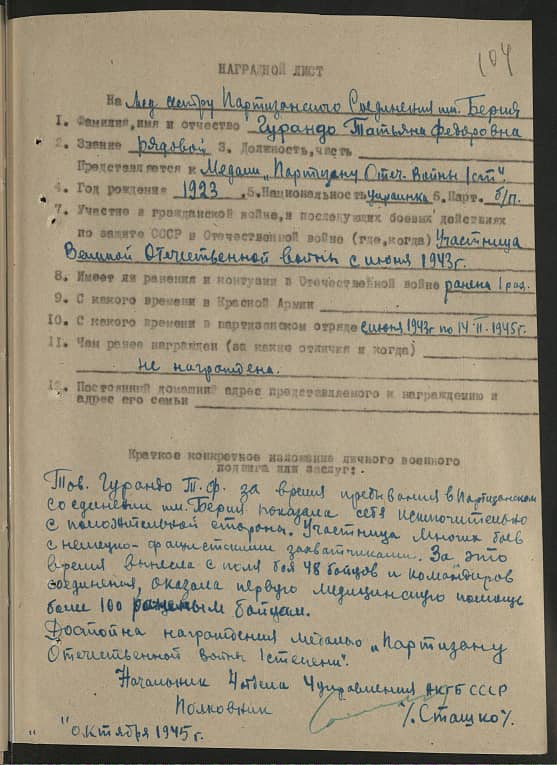 104
НАГРАДНОЙ ЛИСТ
На Мед. сестру Партизанского Соединения им. Берия
1. Фамилия, имя и отчество Гурандо Татьяна Федоровна
2. Звание рядовой 3. Должность, часть
Представляется к Медали „Партизану Отеч. Войны I ст".
4. Год рождения 1923, 5. Национальность украинка 6. Парт. б/п.
7. Участие в гражданской войне, и последующих боевых действиях
по защите СССР в Отечественной войне (где, когда) Участница
Великой Отечественной войны с июня 1943 г.
8. Имеет ли ранения и контузии в Отечественной войне ранена 1 раз.
9. С какого времени в Красной Армии
10. С какого времени в партизанском отряде с июня 1943г по 14 II-1945г.
11. Чем ранее награжден (за какие отличия и когда)
не награждена.
12. Постоянный домашний адрес представляемого к награждению и
адрес его семьи
Краткое конкретное изложение личного военного
подвига или заслуг:
Тов. Гурандо Т.Ф. за время пребывания в Партизанском
соединении им. Берия показала себя исключительно
с положительной стороны. Участница многих боев
с немецко-фашистскими захватчиками. За это
время вынесла с поля боя 48 бойцов и командиров
соединения, оказала первую медицинскую помощь
более 100 раненым бойцам.
Достойна награждения медалью „Партизану
Отечественной войны I степени".
Начальник 4 отдела 4 управления НКГБ СССР
Полковник /Сташко/.
" " октября 1945 г.